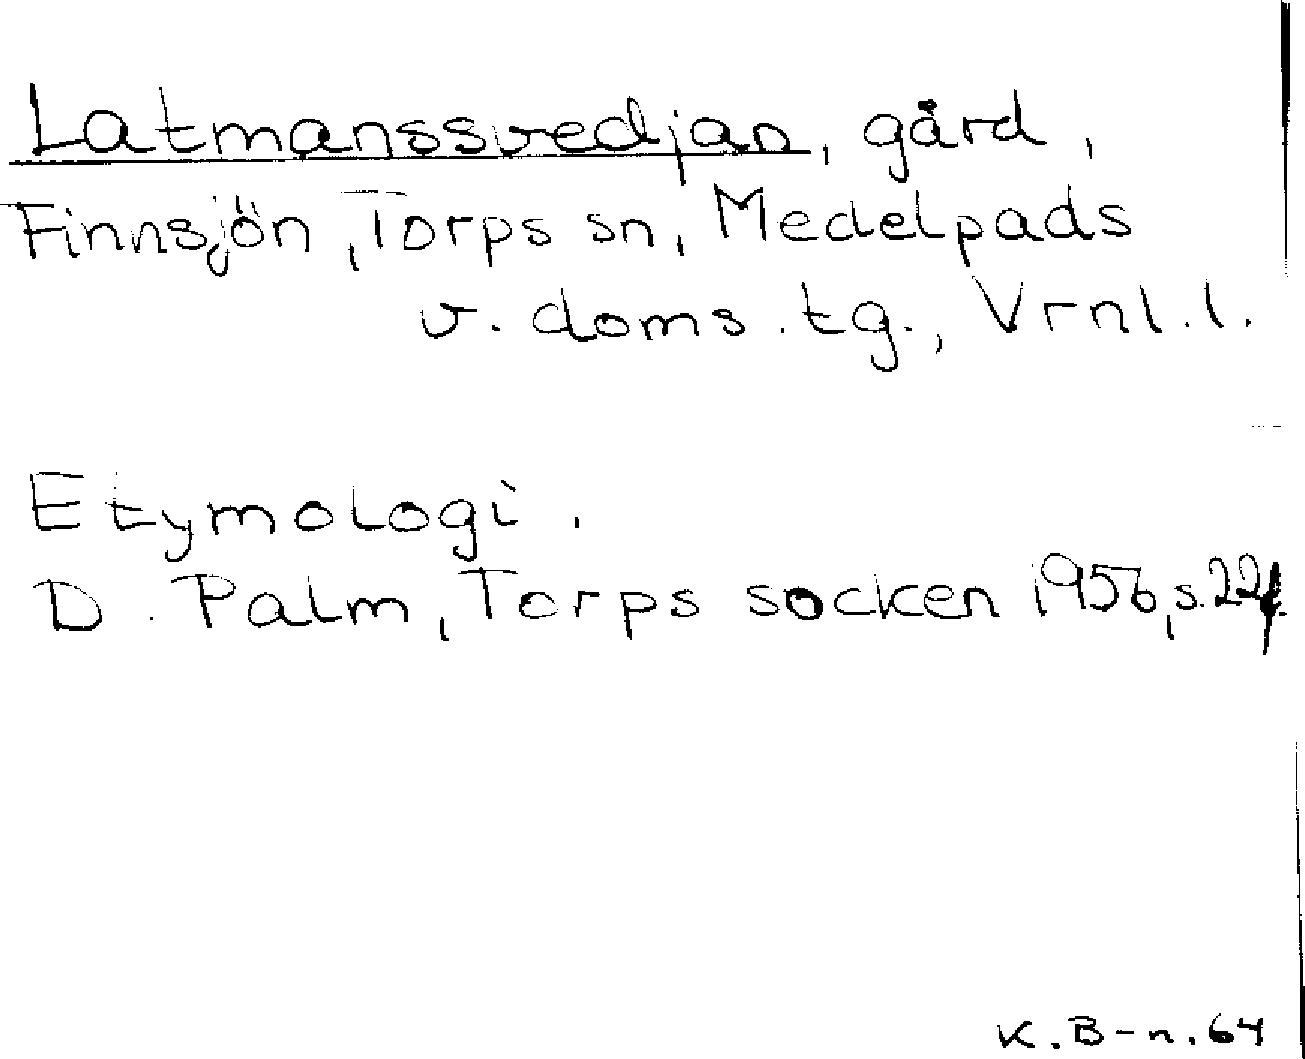 Latmanssvedjan, gård,
Finnsjön, Torps sn, Medelpads
v. doms. tg., Vrnl. l.
Etymologi.
D. Palm, Torps socken 1956, s.
K. B-n. 64